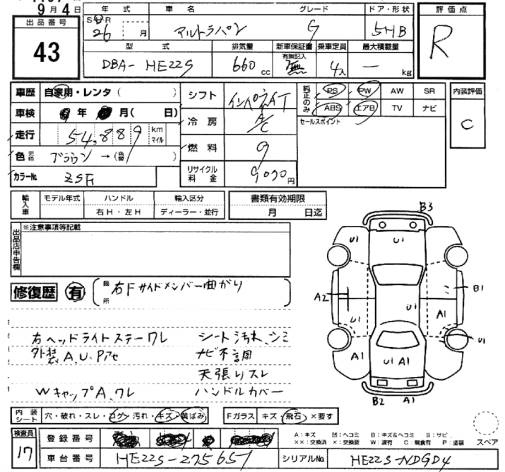 9月4日
出品番号 43
年式 26 月
車名 アルトラパン
グレード G
ドア・形状 5HB
型式 DBA-HE22S
排気量 660 cc
新車保証書 有無記入 無
乗車定員 4人
最大積載量 — kg
評価点 R
車歴 自家用・レンタ( )
車検 年 月( 日)
走行 54,889 km マイル
色 ブラウン→(色替)
カラーNo. ZSH
シフト インパネAT
冷房 A/C
燃料 g
リサイクル料金 9,070円
純正のみ PS PW AW SR
ABS エアB TV ナビ
セールスポイント
内装評価 C
輸入車 モデル年式 ハンドル 右H・左H 輸入区分 ディーラー・並行
書類有効期限 月 日迄
出品店申告欄 ※注意事項等記載
修復歴 有 箇所 右Fサイドメンバー曲がり
右ヘッドライトステーワレ シート汚れ、シミ
外装A,U,P アセ ナビ不良
天張りスレ
Wキャップ A,ワレ ハンドルカバー
B3
U1 U1 U1
A2 B1
U1 A1 U1
A1 U1 A1 A1
B2 A1
内装シート 穴・破れ・スレ・コゲ・汚れ・キズ・黄ばみ
Fガラス キズ・飛石×要す
A:キズ U:凹ヘコミ B:キズ&ヘコミ S:サビ
××:交換済 X:交換 W:波 C:腐食 P:塗装
スペア
検査員 17
登録番号
車台番号 HE22S-275657
シリアルNo. HE22S-NDGD4